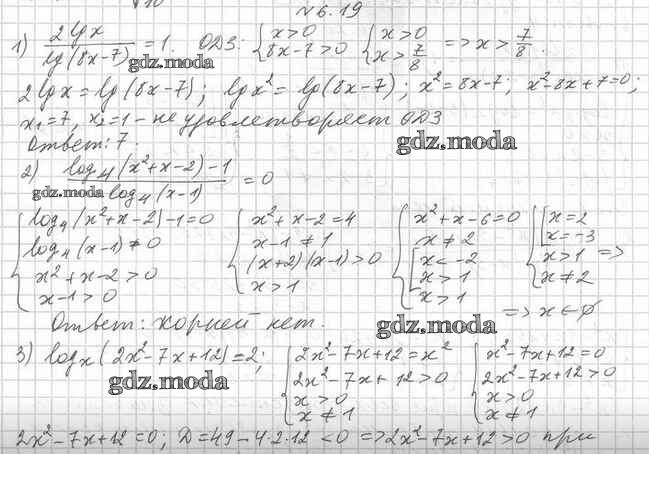 №6.19
1) 2lg x / lg(8x-7) = 1. ОДЗ: { x>0 8x-7>0 { x>0 x>7/8 => x>7/8.
gdz.moda
2lg x = lg(8x-7); lg x² = lg(8x-7); x² = 8x-7; x²-8x+7=0;
x₁=7, x₂=1 - не удовлетворяет ОДЗ
Ответ: 7.
gdz.moda
2) log₄(x²+x-2)-1 / log₄(x-1) = 0
gdz.moda
{ log₄(x²+x-2)-1=0 { x²+x-2=4 { x²+x-6=0 { [ x=2
log₄(x-1)≠0 x-1≠1 x≠2 x=-3
x²+x-2>0 (x+2)(x-1)>0 [ x<-2 x>1 =>
x-1>0 x>1 x>1 x≠2
x>1 => x∈∅
Ответ: корней нет.
gdz.moda
3) logₓ(2x²-7x+12)=2; { 2x²-7x+12=x² { x²-7x+12=0
2x²-7x+12>0 2x²-7x+12>0
gdz.moda
x>0 x>0
x≠1 x≠1
2x²-7x+12=0; D=49-4·2·12<0 => 2x²-7x+12>0 при